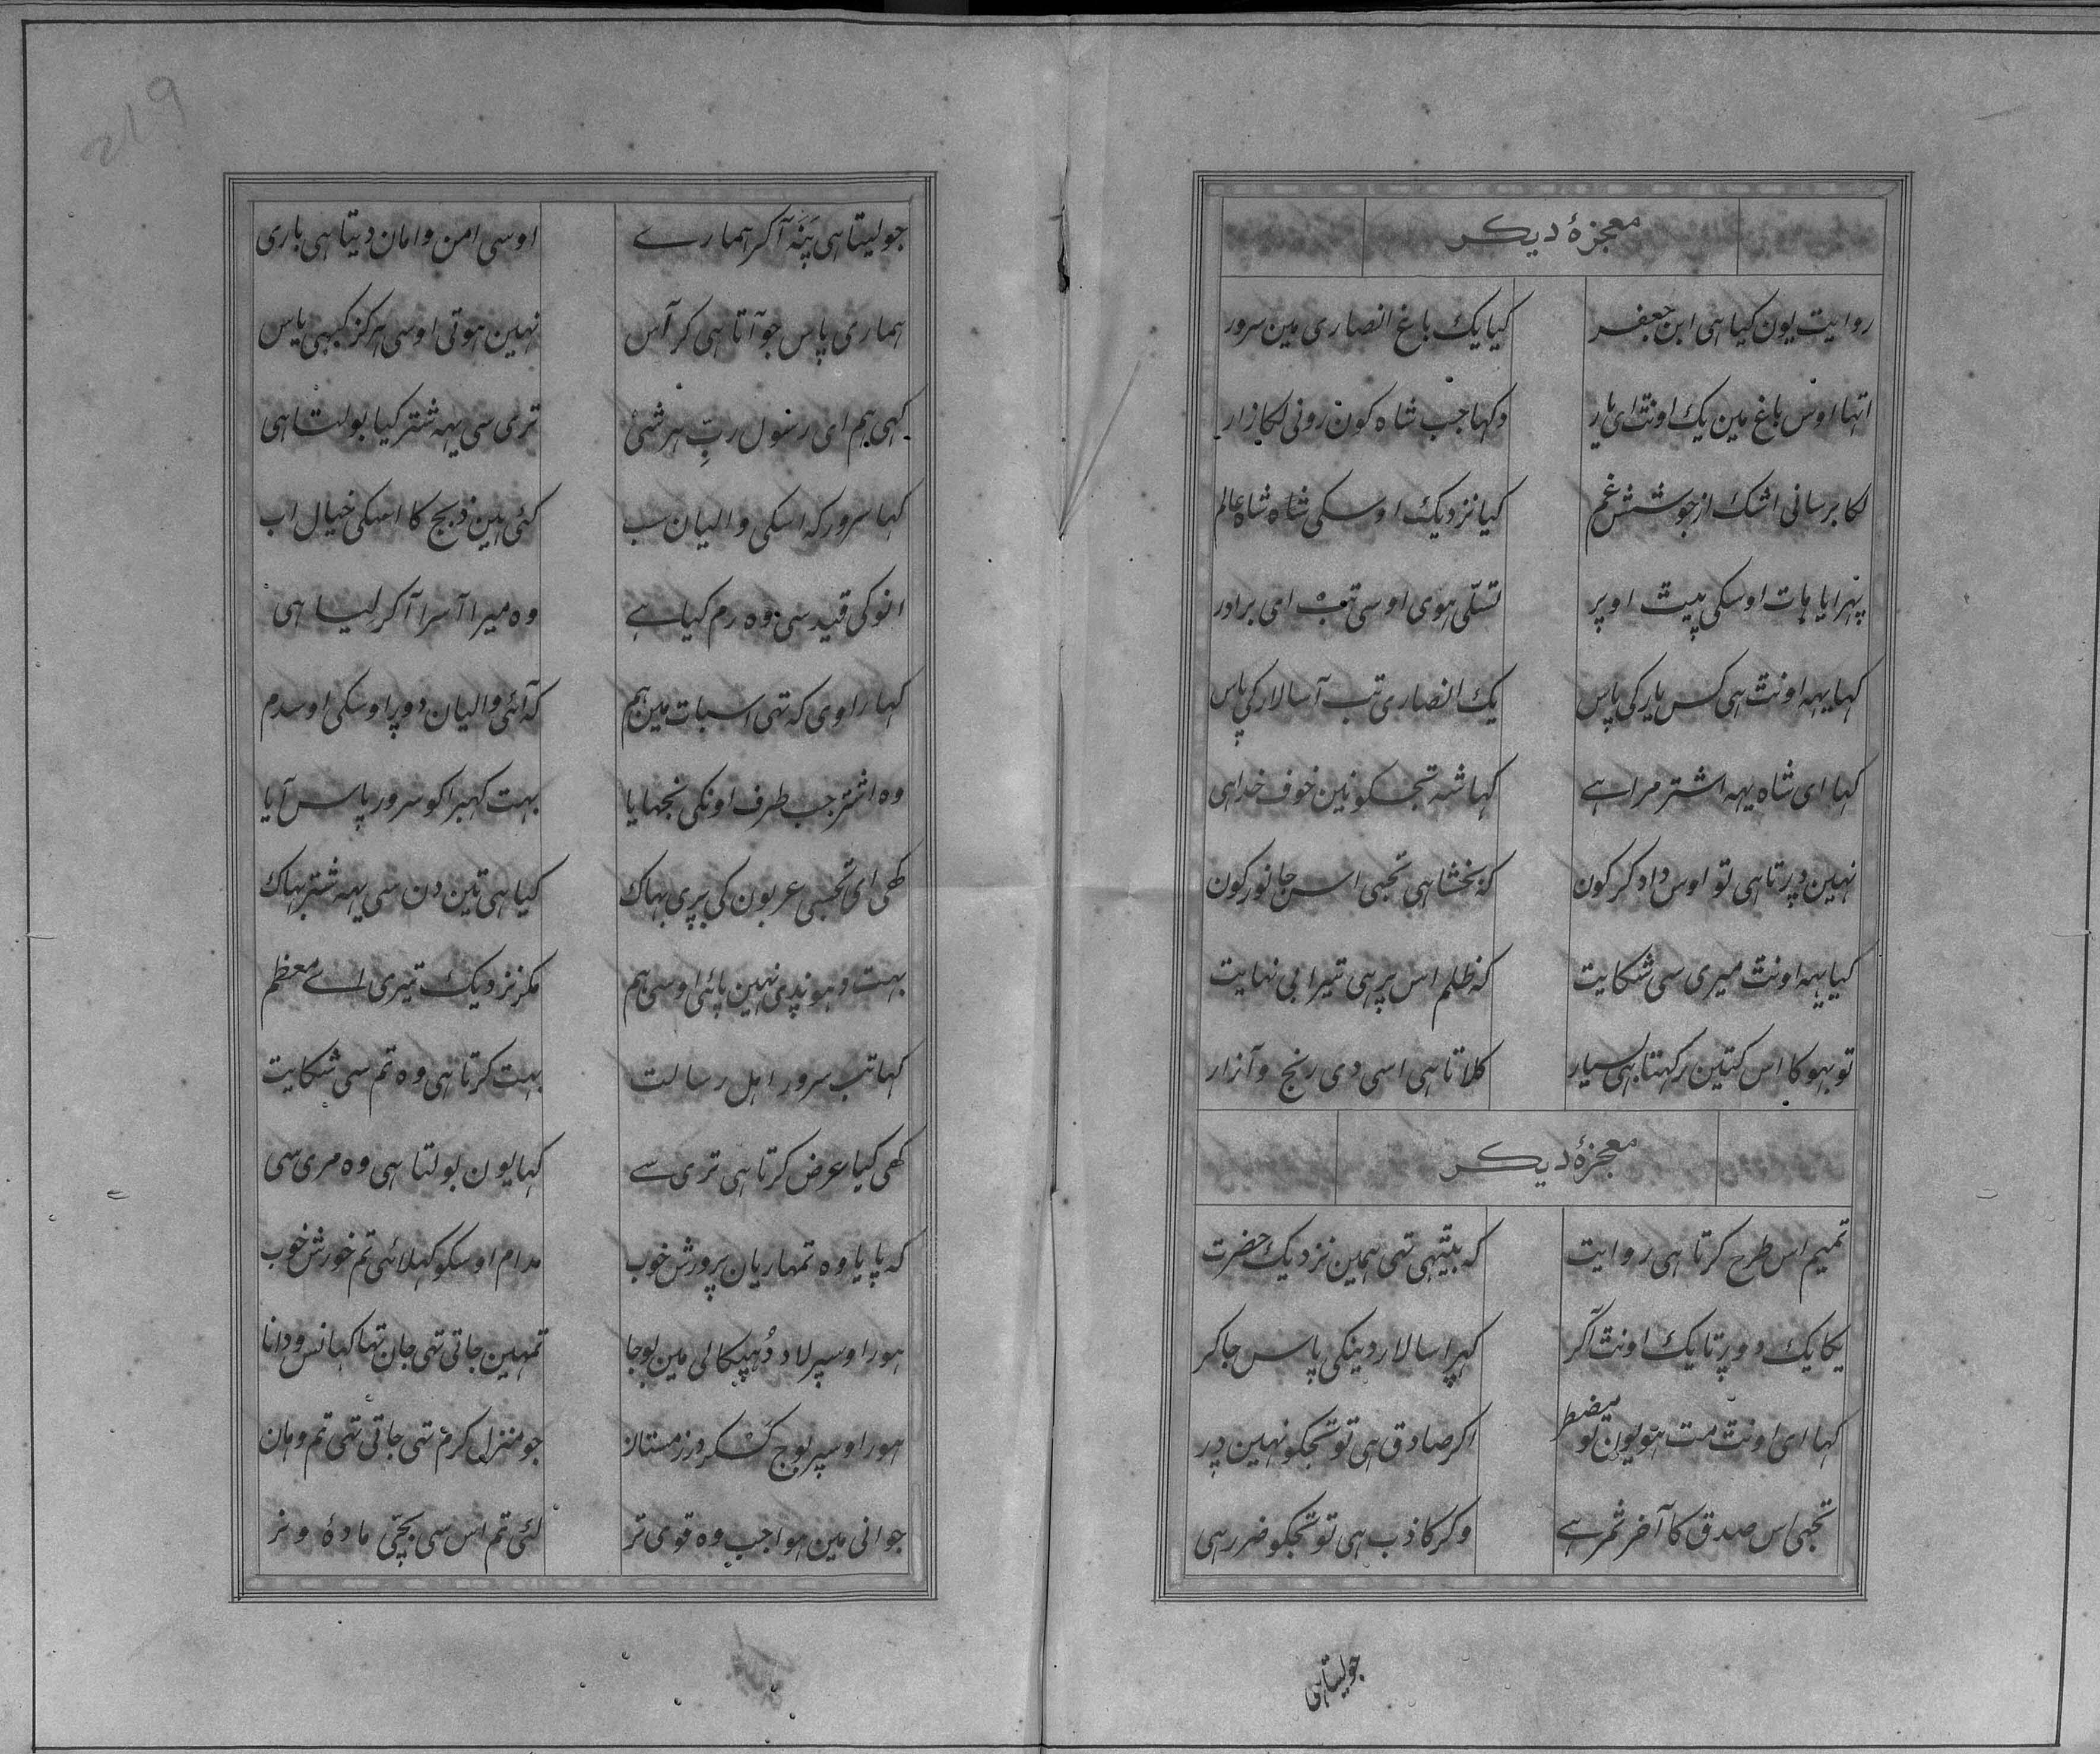 معجزۂ دیکر
روایت یون کیا ہی ابن جعفر کیا یک باغ انصاری مین سرور
اتہا اوس باغ مین یک اونٹ ای یار دکہا جب شاہ کون رونی لکا زار
لکا برسانی اشک از جوشش غم کیا نزدیک اوسکی شاہ شاہ عالم
پہرایا ہات اوسکی پیٹ اوپر تسلّی ہوی اوسی تب ای برادر
کہا یہہ اونٹ ہی کس یار کی پاس یک انصاری تب آ سالار کی پاس
کہا ای شاہ یہہ اشتر مرا ہے کہا شہ تجکو نین خوف خدا ہی
نہین ڈرتا ہی تو اوس دادکر کون کہ بخشا ہی تجہی اس جانور کون
کیا یہہ اونٹ میری سی شکایت کہ ظلم اس پر ہی تیرا بی نہایت
تو بہوکا اس کتین رکہتا ہی بسیار کلاتا ہی اسی دی رنج و آزار
معجزۂ دیکر
تمیم اس طرح کرتا ہی روایت کہ بیٹہی تہی ہمین نزدیک حضرت
یکایک دوڑتا یک اونٹ آکر کہڑا سالار دینکی پاس جاکر
کہا ای اونٹ مت ہو یون تو مضطر اکر صادق ہی تو تجکو نہین ڈر
تجہی اس صدق کا آخر ثمر ہے وکر کاذب ہی تو تجکو ضرر ہی
جو لیتا ہی
جو لیتا ہی پنہ آکر ہمارے اوسی امن و امان دیتا ہی باری
ہماری پاس جو آتا ہی کر آس نہین ہوتی اوسی ہرکز کبہی یاس
کہی ہم ای رسول ربِّ ہر شئ تری سی یہہ شتر کیا بولتا ہی
کہا سرور کہ اسکی والیان سب کئی ہین ذبح کا اسکی خیال اب
انو کی قید سی وہ رم کیا ہے وہ میرا آسرا آکر لیا ہی
کہا راوی کہ تہی اسبات مین ہم کہ آئی والیان دوڑ اوسکی اوسدم
وہ اشتر جب طرف اونکی نجہایا بہت کہبرا کو سرور پاس آیا
کہی ای تجسی عربون کی بڑی بہاک کیا ہی تین دن سی یہہ شتر بہاک
بہت دہونڈی نہین پائی اوسی ہم مکر نزدیک تیری اے معظم
کہا تب سرور اہل رسالت بہت کرتا ہی وہ تم سی شکایت
کہی کیا عرض کرتا ہی تری سے کہا یون بولتا ہی وہ مری سی
کہ پایا وہ تمہاریان پرورش خوب مدام اوسکو کہلائی تم خورش خوب
ہور اوسپر لاد مین بوجا تمہین جاتی تہی جان تہا کہانس و دانا
ہور اوسپر بوج کسکر در زمستان جو منزل کرم تہی جاتی تہی تم وہان
جوانی مین ہوا جب وہ قوی تر لئی تم اس سی بچّی مادہ و نر